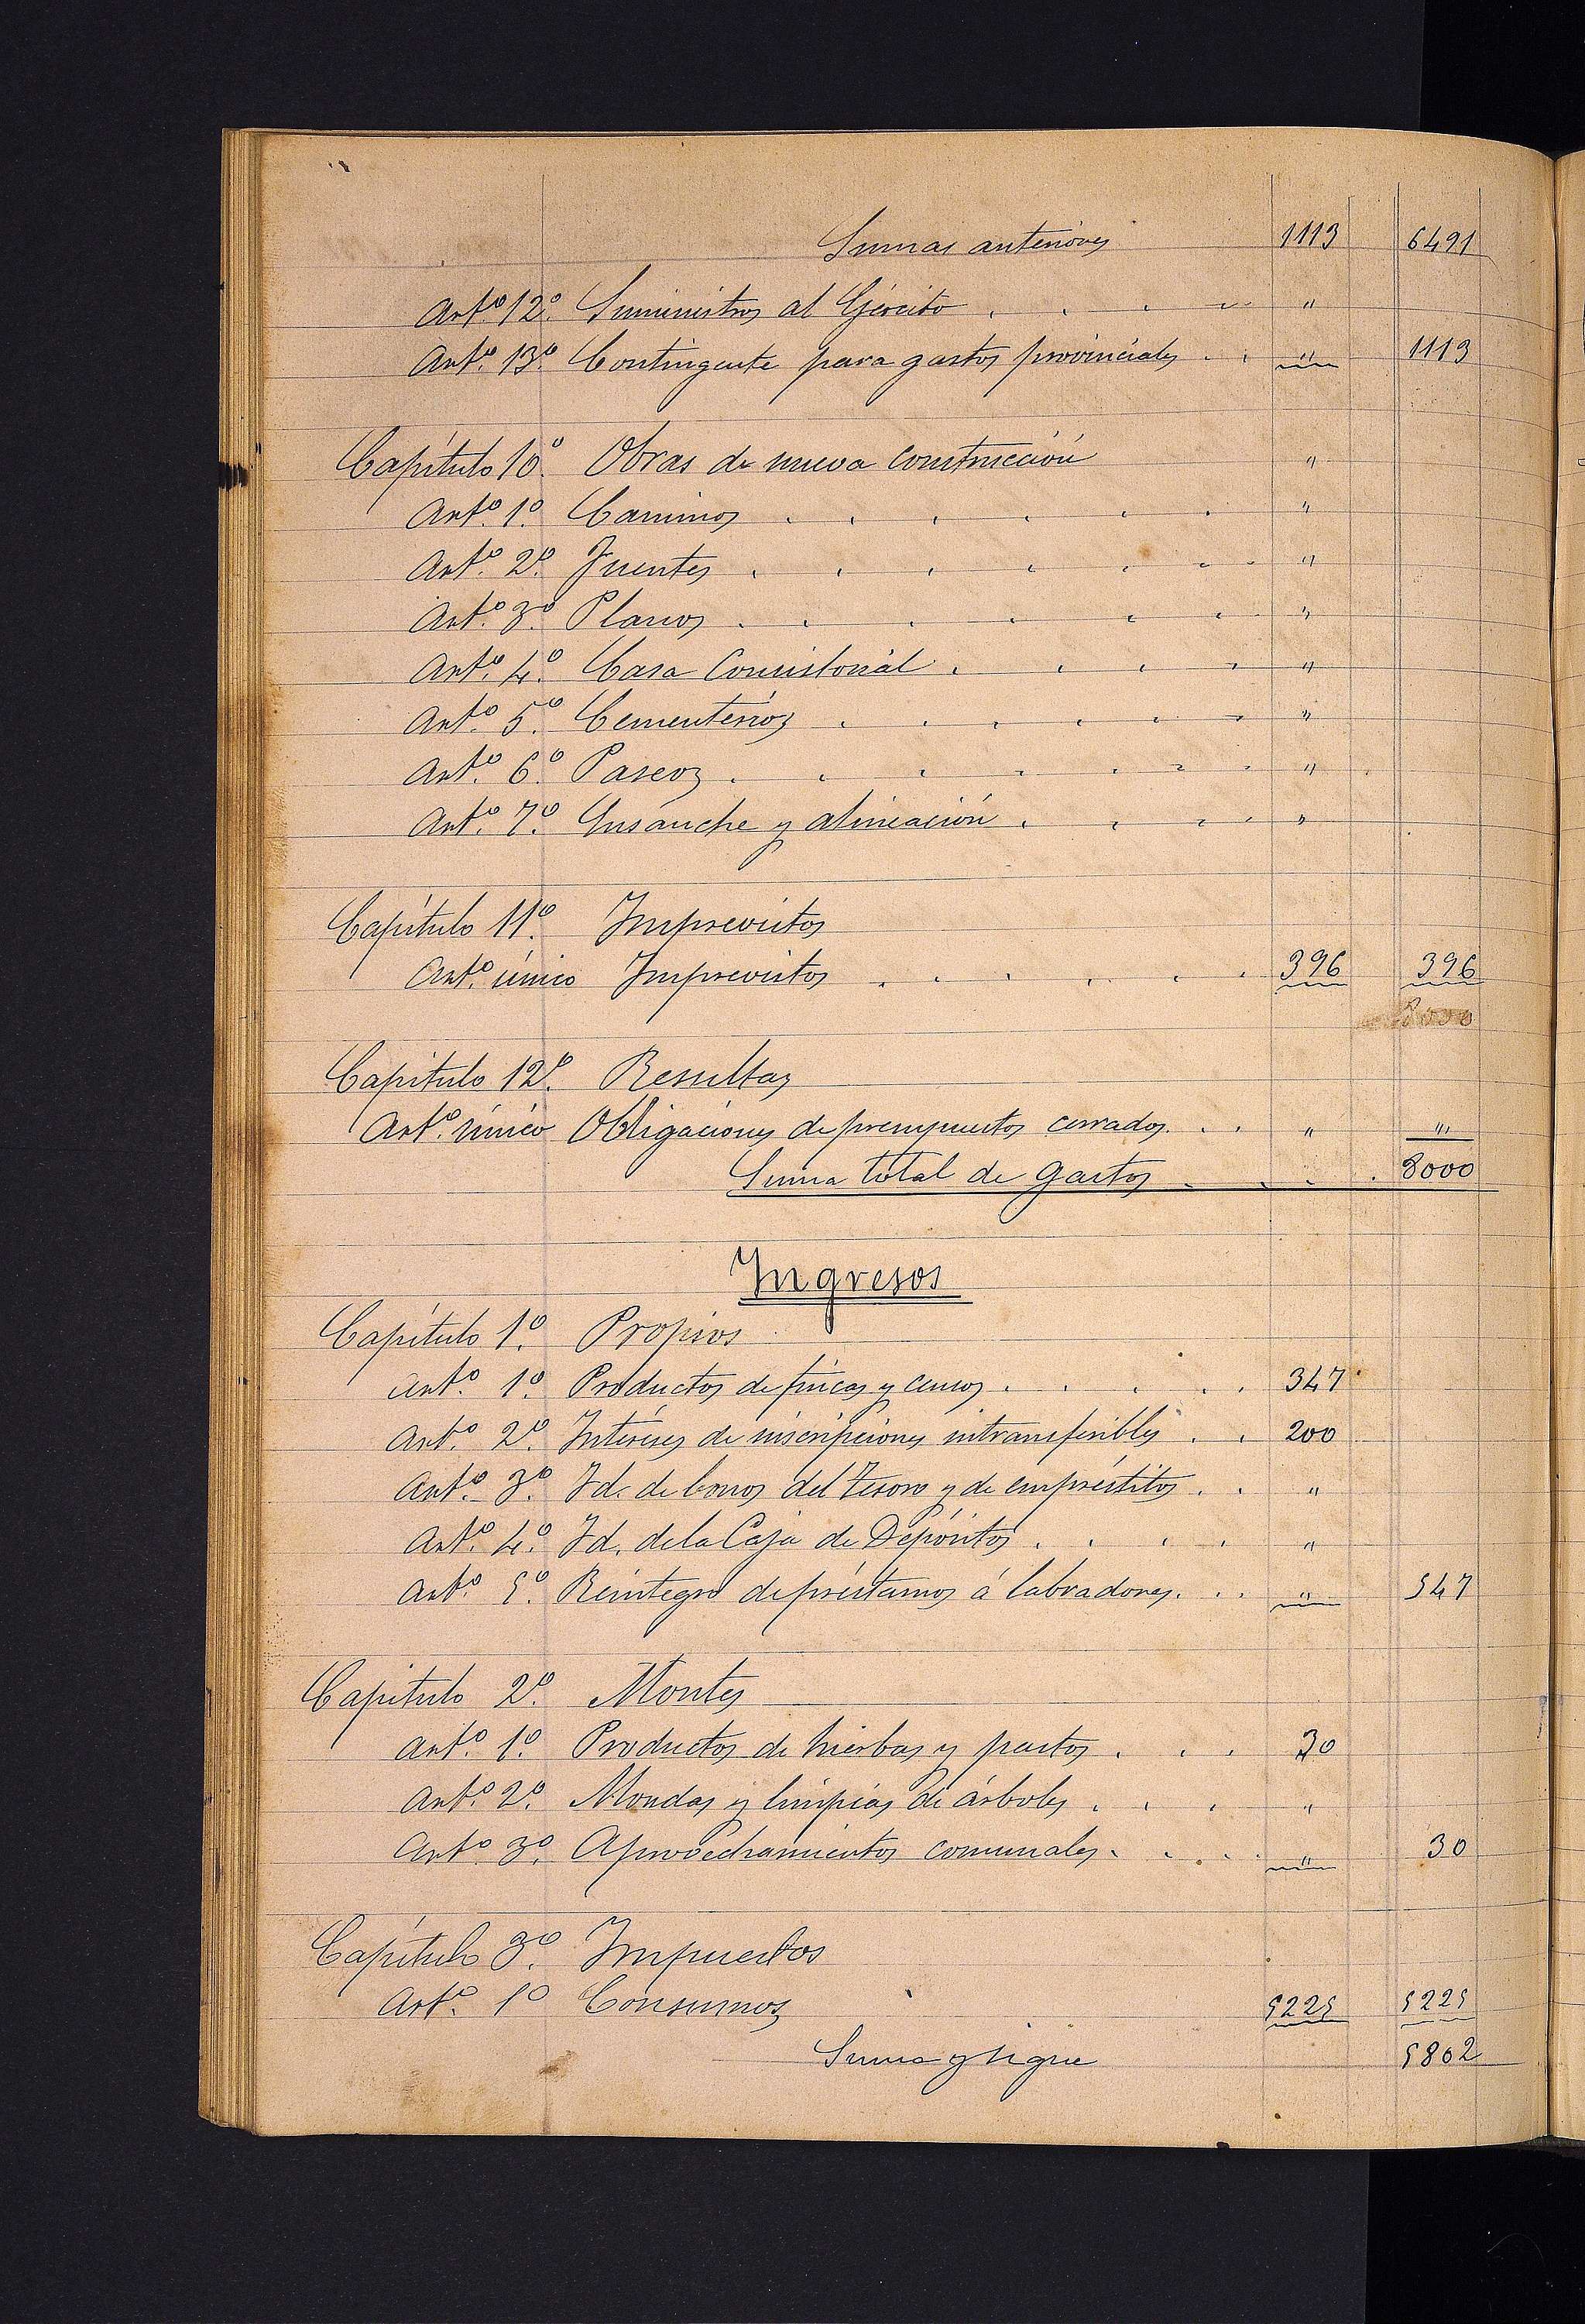 Sumas anteriores 1113 6491
Artº 12º Suministros al Ejército . . . . "
Artº 13º Contingente para gastos provinciales . . " 1113
Capítulo 10º Obras de nueva construcción "
Artº 1º Caminos . . . . . . "
Artº 2º Fuentes . . . . . . . "
Artº 3º Planos . . . . . . "
Artº 4º Casa Consistorial . . . . "
Artº 5º Cementerios . . . . . . "
Artº 6º Paseos . . . . . . . "
Artº 7º Ensanche y alineación . . . . "
Capítulo 11º Imprevistos
Artº único Imprevistos . . . . . . 396 396
8000
Capítulo 12º Resultas
Artº único Obligaciones de presupuestos cerrados . . " "
Suma total de gastos . . . . 8000
Ingresos
Capítulo 1º Propios
Artº 1º Productos de fincas y censos . . . . . 347
Artº 2º Intereses de inscripciones intransferibles . . 200
Artº 3º Id. de bonos del Tesoro y de empréstitos . . "
Artº 4º Id. de la Caja de Depósitos . . . . "
Artº 5º Reintegro de préstamos á labradores . . . " 547
Capítulo 2º Montes
Artº 1º Productos de hierbas y pastos . . . 30
Artº 2º Mondas y limpias de árboles . . . "
Artº 3º Aprovechamientos comunales . . . . " 30
Capítulo 3º Impuestos
Artº 1º Consumos 5225 5225
Suma y sigue 5802